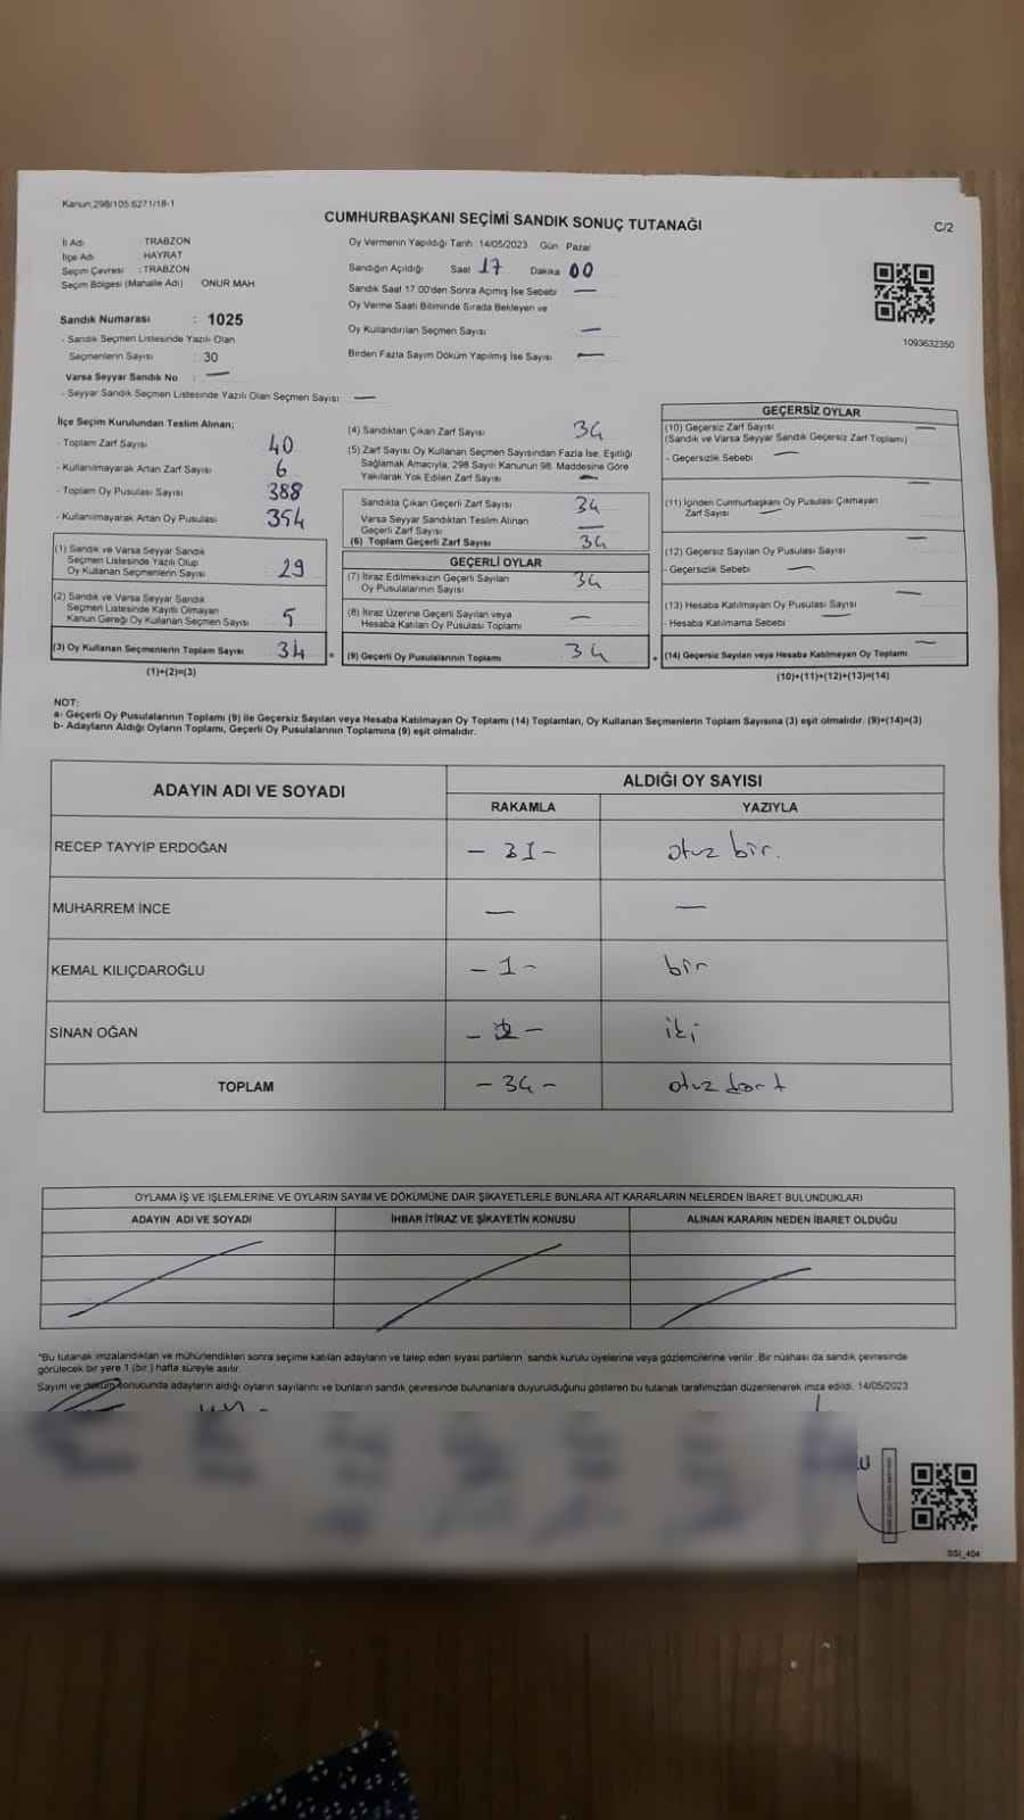 Kanun:298/105 6271/18-1
CUMHURBAŞKANI SEÇİMİ SANDIK SONUÇ TUTANAĞI
C/2
İl Adı : TRABZON
İlçe Adı : HAYRAT
Seçim Çevresi : TRABZON
Seçim Bölgesi (Mahalle Adı) ONUR MAH
Oy Vermenin Yapıldığı Tarih :14/05/2023 Gün: Pazar
Sandığın Açıldığı Saat 17 Dakika 00
Sandık Saat 17:00'den Sonra Açımış İse Sebebi —
Oy Verme Saati Bitiminde Sırada Bekleyen ve
Oy Kullandırılan Seçmen Sayısı —
Birden Fazla Sayım Döküm Yapılmış İse Sayısı —
1093632350
Sandık Numarası : 1025
- Sandık Seçmen Listesinde Yazılı Olan
Seçmenlerin Sayısı : 30
Varsa Seyyar Sandık No : —
- Seyyar Sandık Seçmen Listesinde Yazılı Olan Seçmen Sayısı —
İlçe Seçim Kurulundan Teslim Alınan;
- Toplam Zarf Sayısı 40
- Kullanılmayarak Artan Zarf Sayısı 6
- Toplam Oy Pusulası Sayısı 388
- Kullanılmayarak Artan Oy Pusulası 354
(1) Sandık ve Varsa Seyyar Sandık
Seçmen Listesinde Yazılı Olup
Oy Kullanan Seçmenlerin Sayısı 29
(2) Sandık ve Varsa Seyyar Sandık
Seçmen Listesinde Kayıtlı Olmayan
Kanun Gereği Oy Kullanan Seçmen Sayısı 5
(3) Oy Kullanan Seçmenlerin Toplam Sayısı 34
(1)+(2)=(3)
(4) Sandıktan Çıkan Zarf Sayısı 34
(5) Zarf Sayısı Oy Kullanan Seçmen Sayısından Fazla İse, Eşitliği
Sağlamak Amacıyla, 298 Sayılı Kanunun 98. Maddesine Göre
Yakılarak Yok Edilen Zarf Sayısı —
Sandıkta Çıkan Geçerli Zarf Sayısı 34
Varsa Seyyar Sandıktan Teslim Alınan
Geçerli Zarf Sayısı —
(6) Toplam Geçerli Zarf Sayısı 34
GEÇERLİ OYLAR
(7) İtiraz Edilmeksizin Geçerli Sayılan
Oy Pusulalarının Sayısı 34
(8) İtiraz Üzerine Geçerli Sayılan veya
Hesaba Katılan Oy Pusulası Toplamı —
(9) Geçerli Oy Pusulalarının Toplamı 34
GEÇERSİZ OYLAR
(10) Geçersiz Zarf Sayısı —
(Sandık ve Varsa Seyyar Sandık Geçersiz Zarf Toplamı)
- Geçersizlik Sebebi —
(11) İçinden Cumhurbaşkanı Oy Pusulası Çıkmayan —
Zarf Sayısı —
(12) Geçersiz Sayılan Oy Pusulası Sayısı —
- Geçersizlik Sebebi —
(13) Hesaba Katılmayan Oy Pusulası Sayısı —
- Hesaba Katılmama Sebebi —
(14) Geçersiz Sayılan veya Hesaba Katılmayan Oy Toplamı —
(10)+(11)+(12)+(13)=(14)
NOT:
a- Geçerli Oy Pusulalarının Toplamı (9) ile Geçersiz Sayılan veya Hesaba Katılmayan Oy Toplamı (14) Toplamları, Oy Kullanan Seçmenlerin Toplam Sayısına (3) eşit olmalıdır. (9)+(14)=(3)
b- Adayların Aldığı Oyların Toplamı, Geçerli Oy Pusulalarının Toplamına (9) eşit olmalıdır.
ADAYIN ADI VE SOYADI
ALDIĞI OY SAYISI
RAKAMLA YAZIYLA
RECEP TAYYİP ERDOĞAN - 31 - otuz bir.
MUHARREM İNCE — —
KEMAL KILIÇDAROĞLU - 1 - bir
SİNAN OĞAN - 2 - iki
TOPLAM - 34 - otuz dört
OYLAMA İŞ VE İŞLEMLERİNE VE OYLARIN SAYIM VE DÖKÜMÜNE DAİR ŞİKAYETLERLE BUNLARA AİT KARARLARIN NELERDEN İBARET BULUNDUKLARI
ADAYIN ADI VE SOYADI İHBAR İTİRAZ VE ŞİKAYETİN KONUSU ALINAN KARARIN NEDEN İBARET OLDUĞU
*Bu tutanak imzalandıktan ve mühürlendikten sonra seçime katılan adayların ve talep eden siyasi partilerin sandık kurulu üyelerine veya gözlemcilerine verilir. Bir nüshası da sandık çevresinde
görülecek bir yere 1 (bir ) hafta süreyle asılır.
Sayım ve döküm sonucunda adayların aldığı oyların sayılarını ve bunların sandık çevresinde bulunanlara duyurulduğunu gösteren bu tutanak tarafımızdan düzenlenerek imza edildi. 14/05/2023
SSI_404